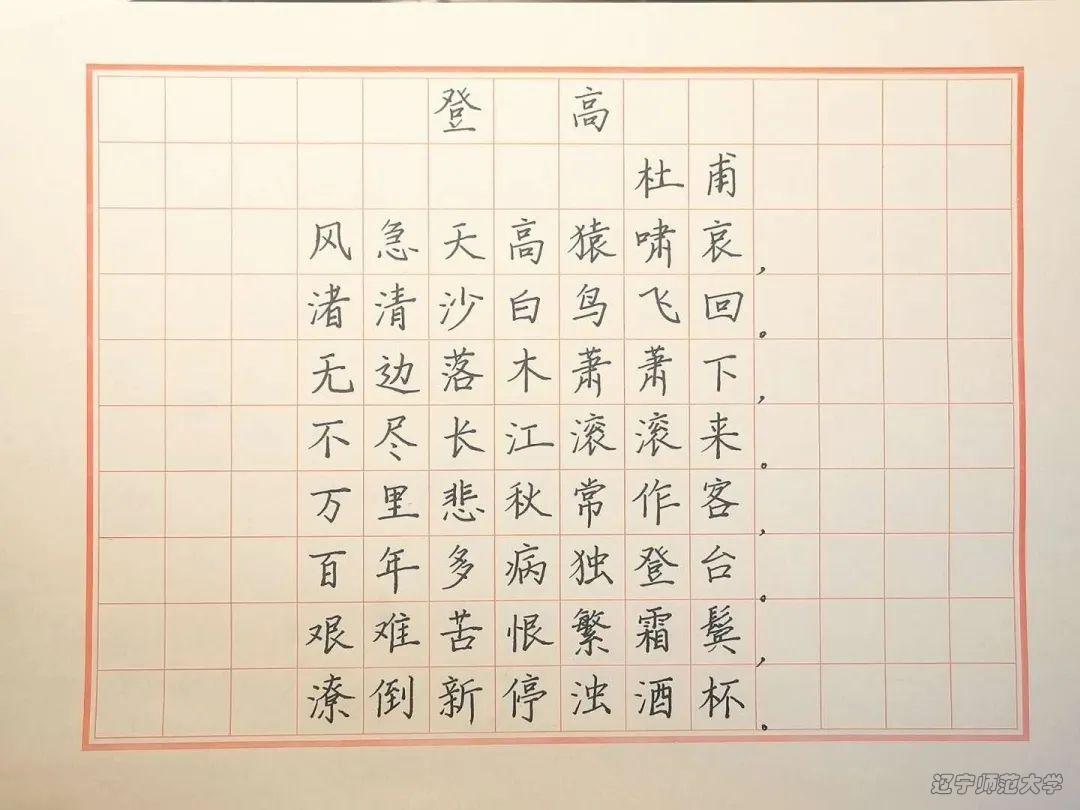 登高
杜甫
风急天高猿啸哀,
渚清沙白鸟飞回。
无边落木萧萧下,
不尽长江滚滚来。
万里悲秋常作客,
百年多病独登台。
艰难苦恨繁霜鬓,
潦倒新停浊酒杯。
辽宁师范大学